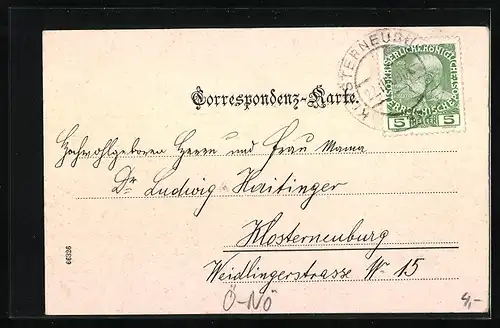 KLOSTERNEUBU
KAISERLICHE KÖNIGLICHE ÖSTERREICHISCHE POST
5 5
Correspondenz-Karte.
Hochwohlgeboren Herrn und Frau Mama
Dr Ludwig Haitinger
Klosterneuburg
Weidlingerstrasse No 15
66326
Ö-NÖ
4,-